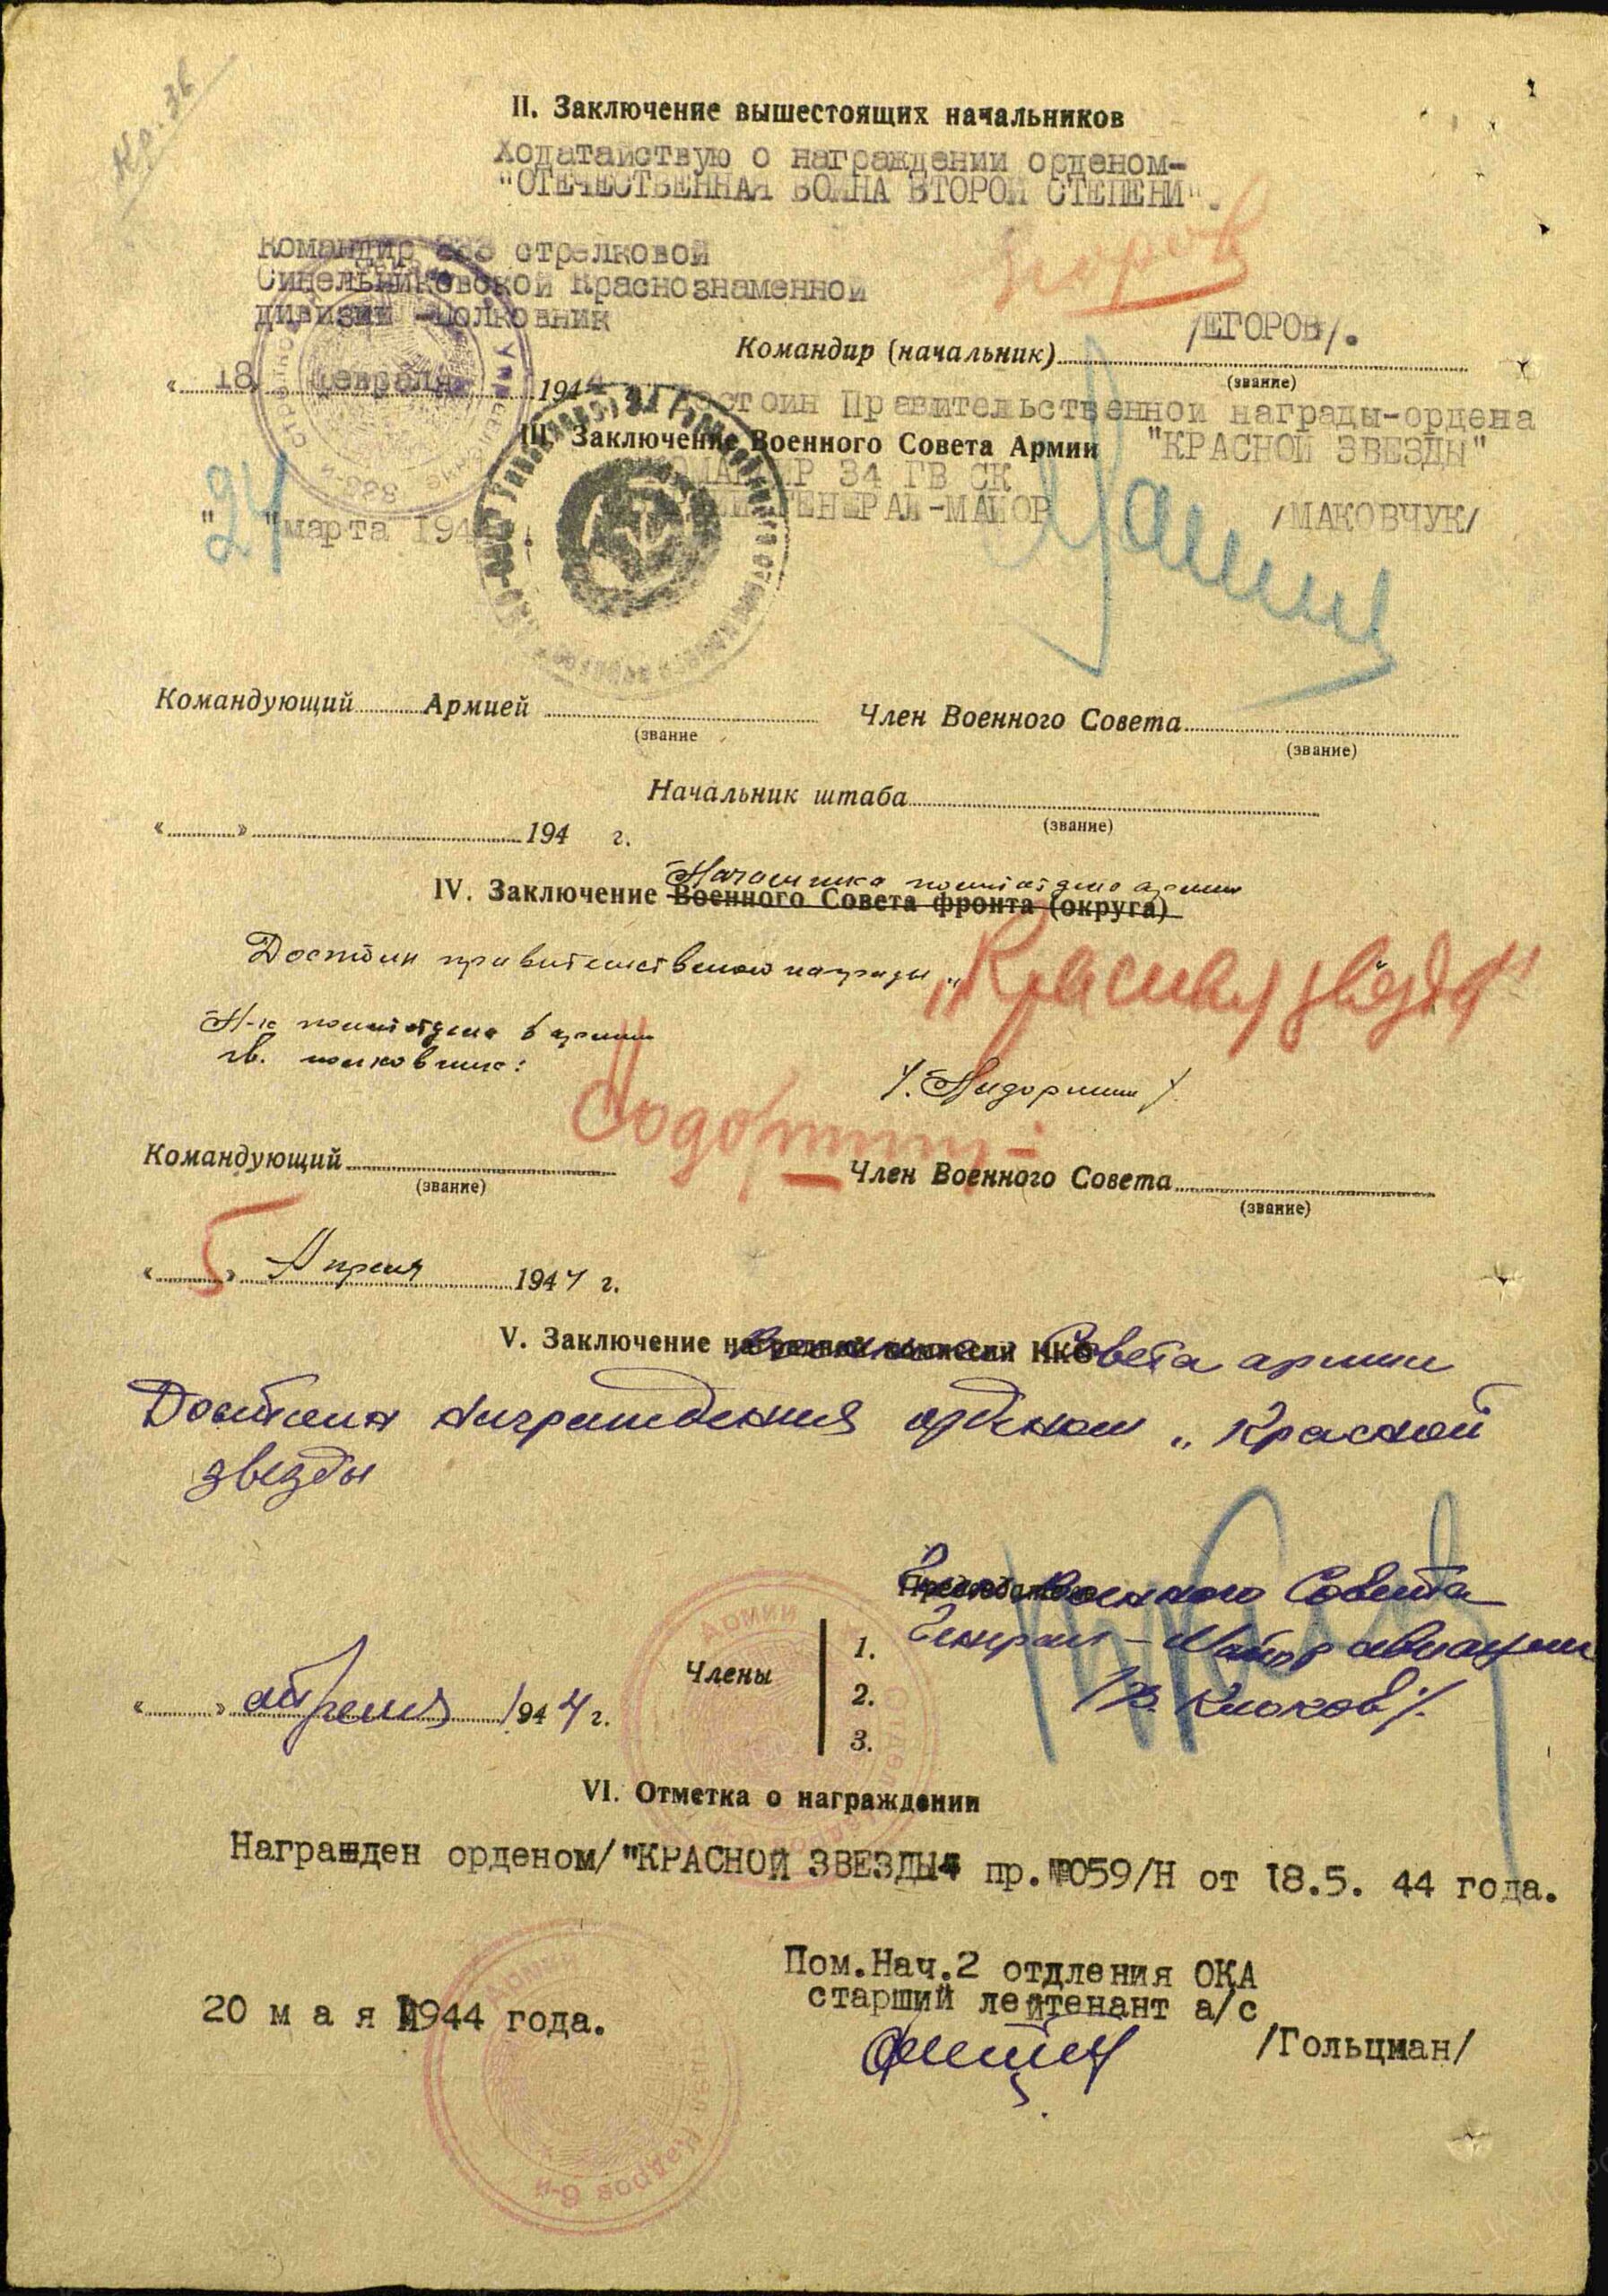 Кр. Зв
II. Заключение вышестоящих начальников
Ходатайствую о награждении орденом-
"ОТЕЧЕСТВЕННАЯ ВОЙНА ВТОРОЙ СТЕПЕНИ".
Командир 333 стрелковой
Синельниковской Краснознаменной
дивизии -Полковник
Егоров
/ЕГОРОВ/.
Командир (начальник)
(звание)
" 18 февраля 1944
Достоин Правительственной награды-ордена
III. Заключение Военного Совета Армии "КРАСНОЙ ЗВЕЗДЫ"
КОМАНДИР 34 ГВ СК
ГЕНЕРАЛ-МАЙОР /МАКОВЧУК/
"24" марта 194
Командующий Армией Член Военного Совета
(звание (звание)
Начальник штаба
(звание)
« » 194 г.
Начальника политотдела армии
IV. Заключение Военного Совета фронта (округа)
Достоин правительственной награды „Красная звезда"
Н-к политотдела 6 армии
гв. полковник:
Командующий Член Военного Совета
(звание) (звание)
«5» Апреля 1944 г.
V. Заключение наградной комиссии НКО
Военного Совета армии
Достоин награждения орденом „Красной
звезды
Председатель
Член Военного Совета
Генерал-Майор авиации
/В. Клоков/.
Члены
1.
2.
3.
« » апреля 1944 г.
VI. Отметка о награждении
Награжден орденом/"КРАСНОЙ ЗВЕЗДЫ" пр.№059/Н от 18.5. 44 года.
Пом.Нач.2 отдления ОКА
старший лейтенант а/с
20 м а я 1944 года.
/Гольцман/